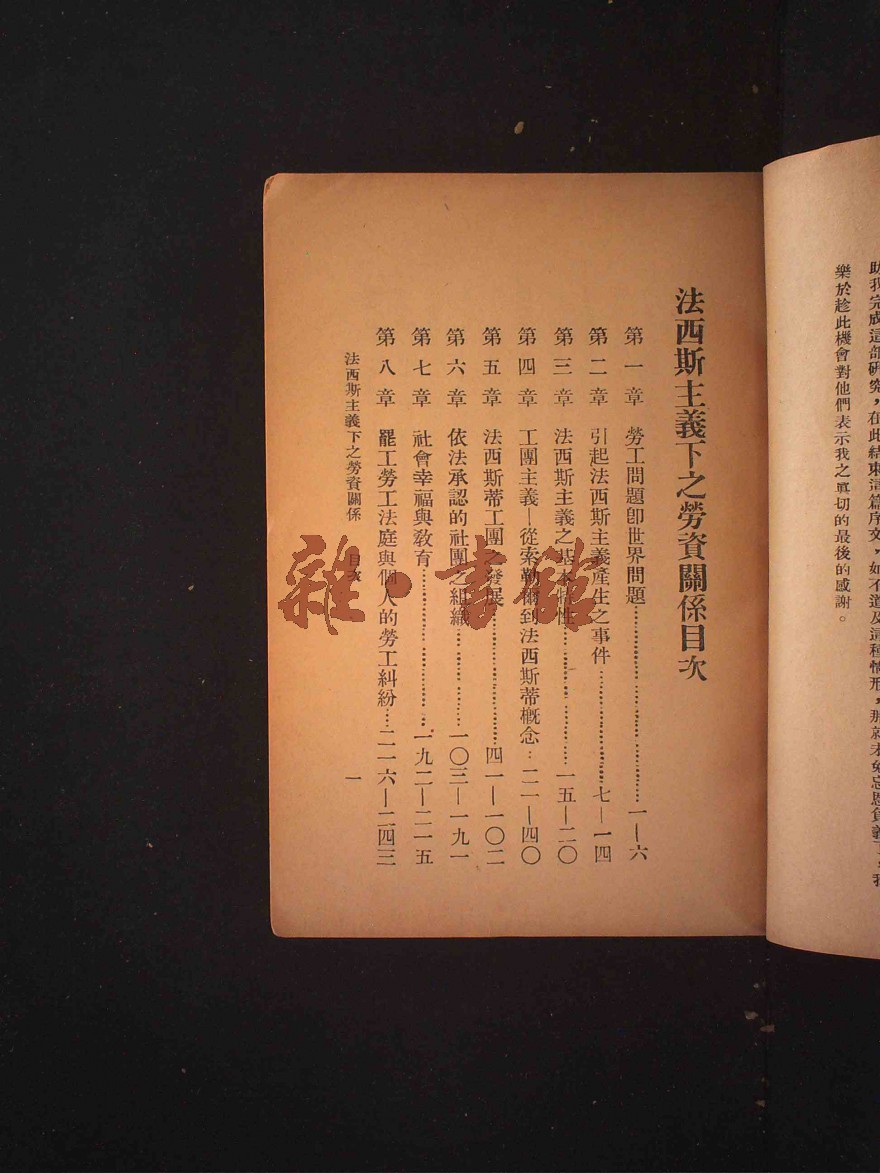 助我完成這部研究，在此結束這篇序文，如不道及這種情形，那就未免忘恩負義了。我
樂於趁此機會對他們表示我之眞切的最後的感謝。
法西斯主義下之勞資關係目次
第一章 勞工問題卽世界問題……一—六
第二章 引起法西斯主義產生之事件……七—一四
第三章 法西斯主義之基本特性……一五—二〇
第四章 工團主義—從索勒爾到法西斯蒂概念…二一—四〇
第五章 法西斯蒂工團之發展……四一—一〇二
第六章 依法承認的社團之組織……一〇三—一九一
第七章 社會幸福與敎育……一九二—二一五
第八章 罷工勞工法庭與個人的勞工糾紛…二一六—二四三
法西斯主義下之勞資關係 目次 一
雜·書館